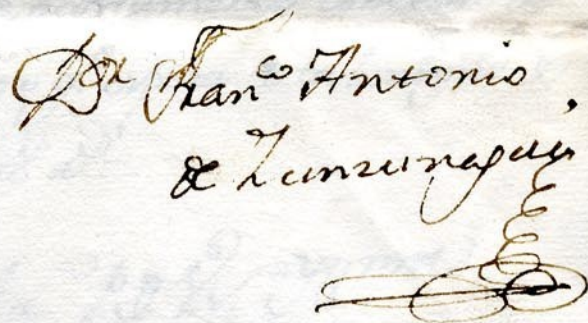 Dn Franco Antonio
de Zunzunegui